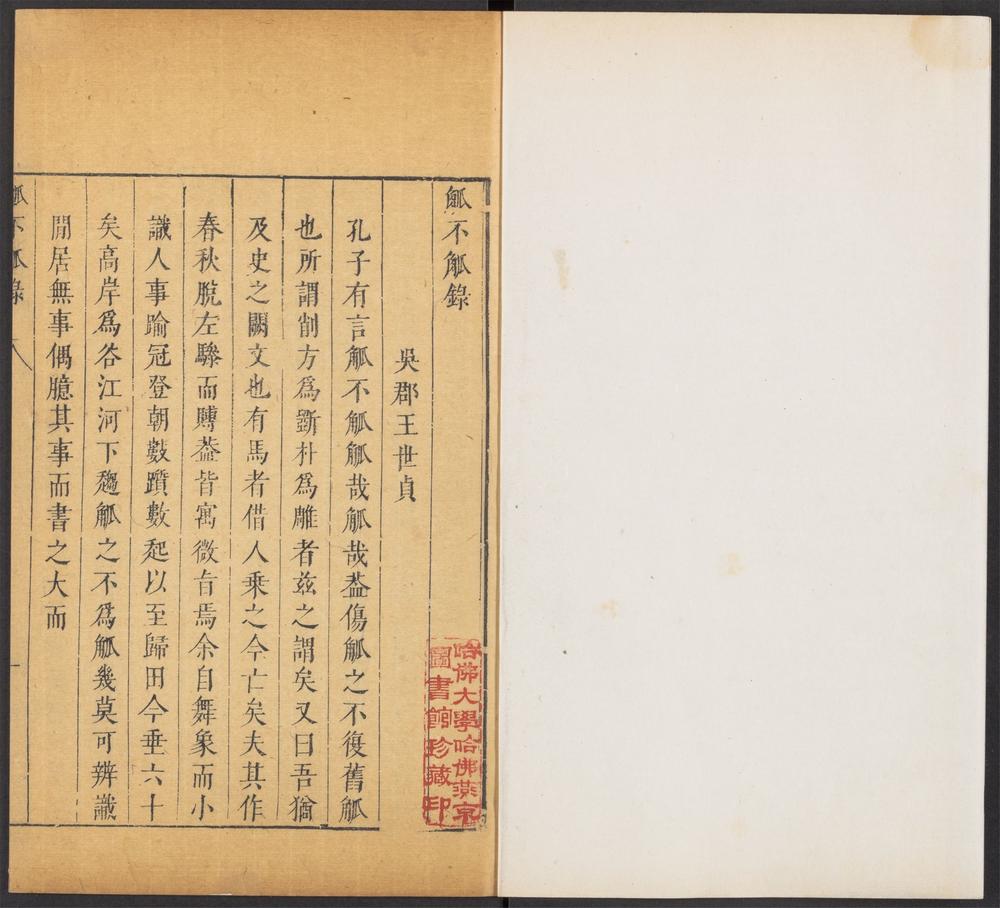 觚不觚錄
吳郡王世貞
孔子有言觚不觚觚哉觚哉葢傷觚之不復舊觚
也所謂削方爲斲朴爲雕者茲之謂矣又曰吾猶
及史之闕文也有馬者借人乗之今亡矣夫其作
春秋脫左驂而賻葢皆寓微旨焉余自舞象而小
識人事踰冠登朝數躓數起以至歸田今垂六十
矣高岸爲谷江河下趨觚之不爲觚幾莫可辨識
閒居無事偶臆其事而書之大而
觚不觚錄
一
哈佛大學哈佛燕京
圖書館珍藏印